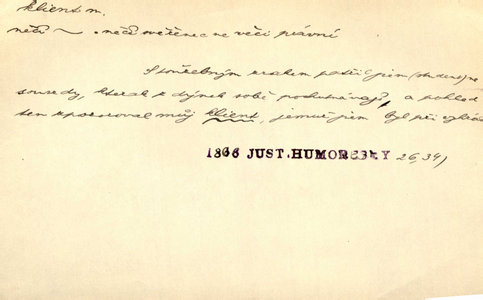 klient m.
nečí ~ . nečí svěřenec ve věci právní
S toužebným zrakem patřil jsem (student) na
sousedy, kterak z dýmek sobě pochutnávají, a pohled
ten zpozoroval můj klient, jemuž jsem byl při
1866 JUST. HUMORESKY 26, 34)